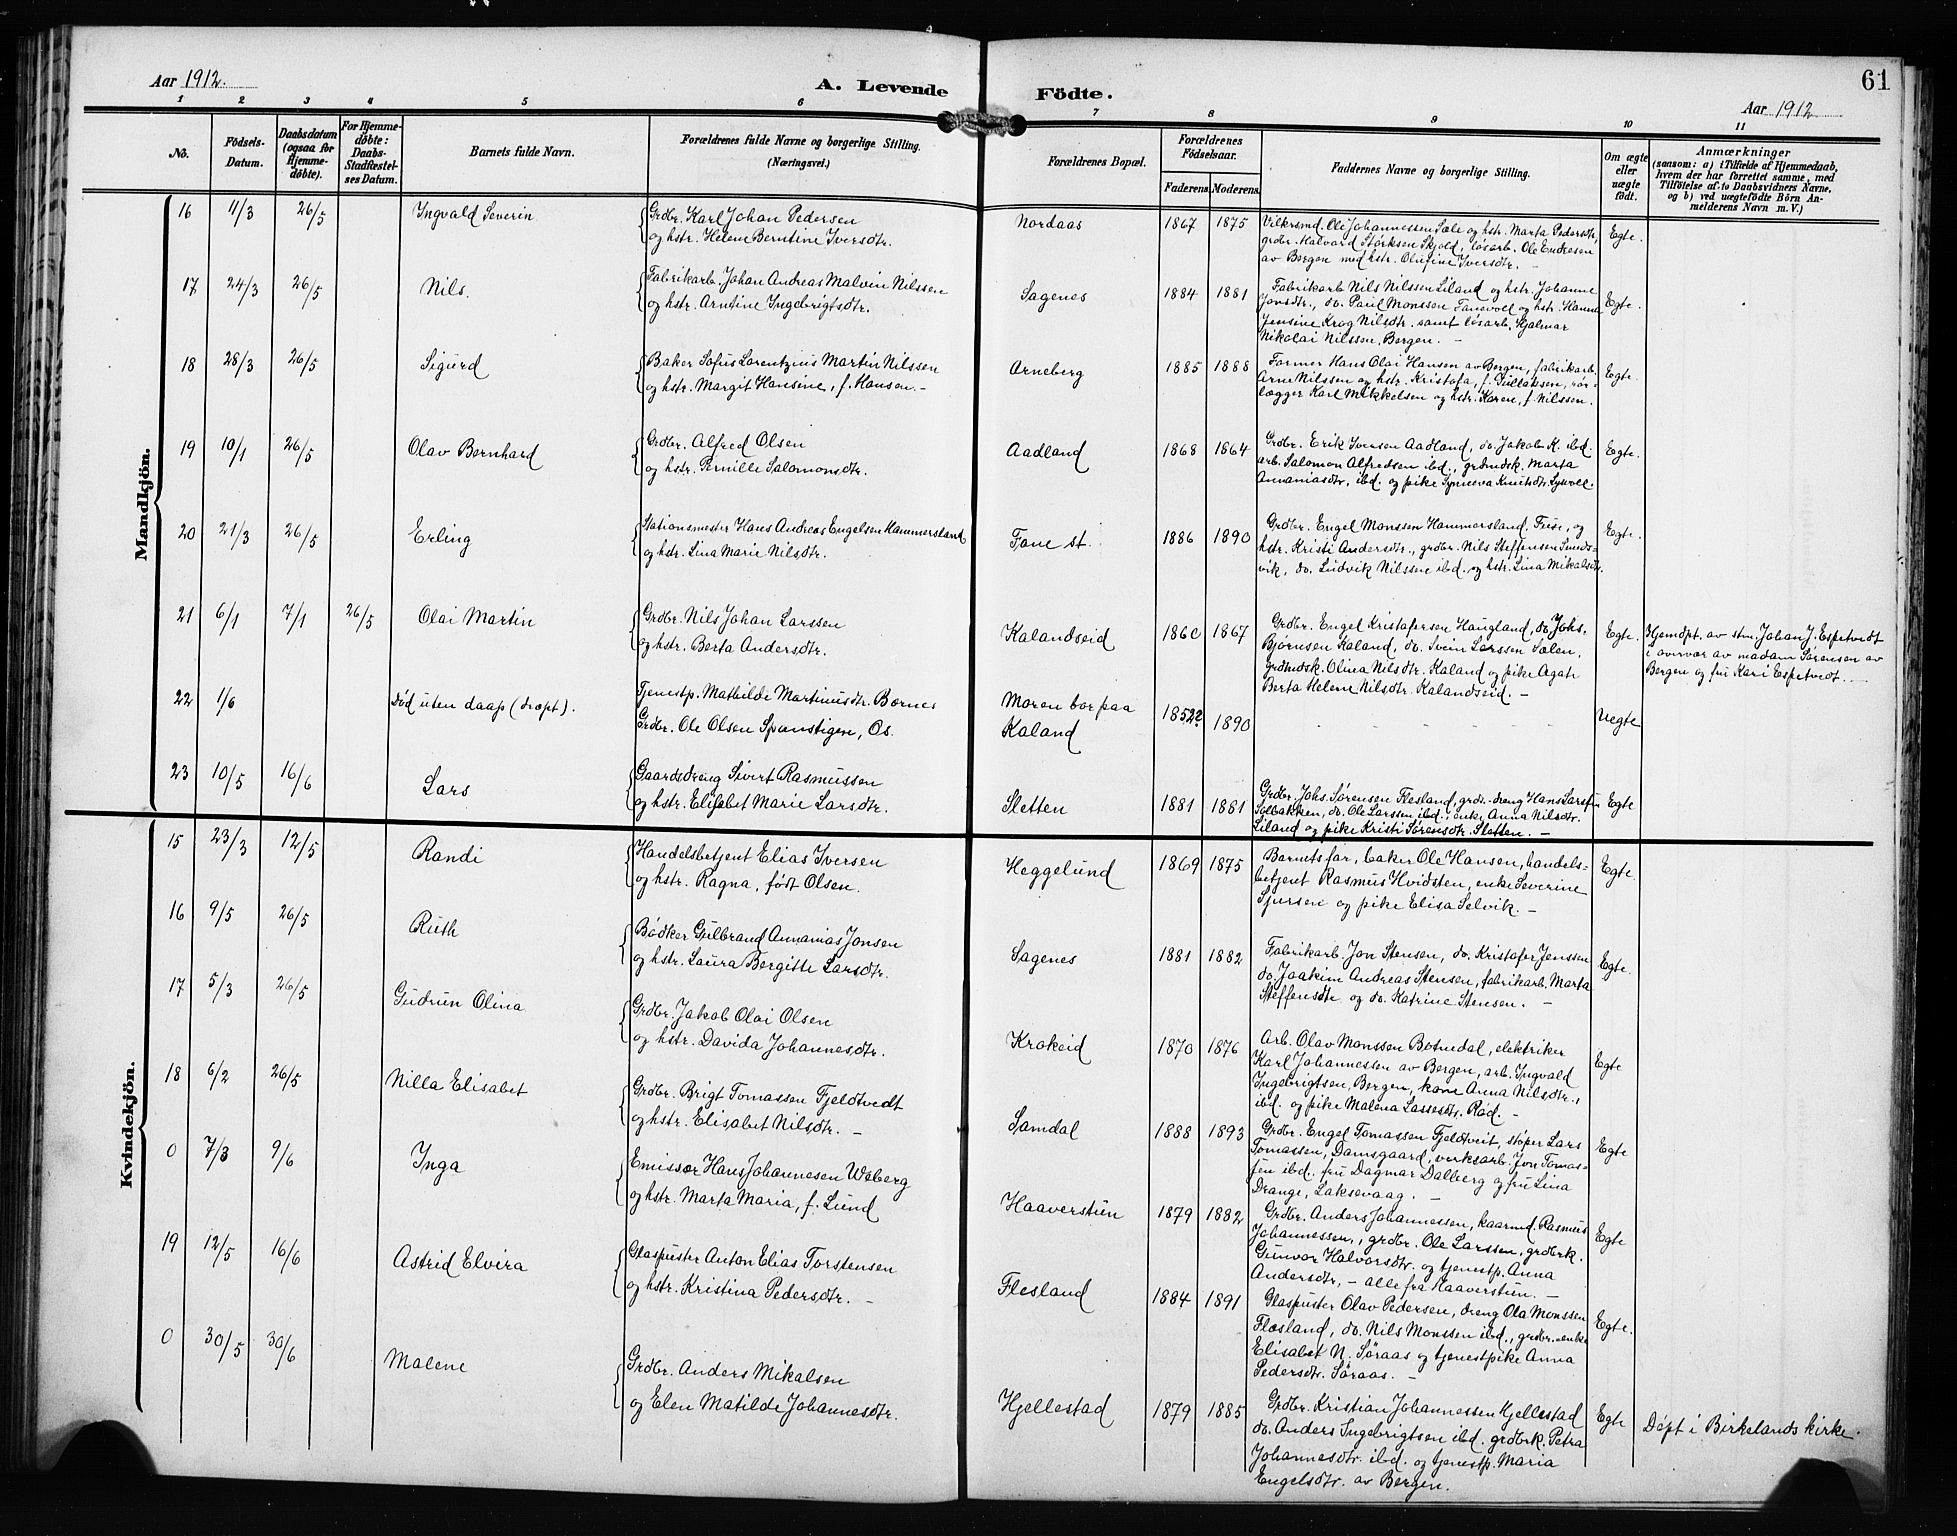 Aar 1912.
A. Levende Födte.
61
Aar 1912
1 2 3 4 5 6 7 8 9 10 11
No.
Födsels-
Datum.
Daabsdatum
(ogsaa for
Hjemme-
döbte).
For Hjemme-
döbte:
Daabs-
Stadfæstel-
ses Datum.
Barnets fulde Navn.
Forældrenes fulde Navne og borgerlige Stilling.
(Næringsvei.)
Forældrenes Bopæl.
Forældrenes
Födselsaar.
Faderens. Moderens.
Faddernes Navne og borgerlige Stilling.
Om ægte
eller
uægte
födt.
Anmærkninger
(saasom: a) i Tilfælde af Hjemmedaab,
hvem der har forrettet samme, med
Tilföielse af to Daabsvidners Navne,
og b) ved uægtefödte Börn An-
melderens Navn m. V.)
Mandkjön.
16 11/3 26/5 Ingvald Severin
Grdbr. Karl Johan Pedersen
og hstr. Helene Berntine Iversdtr.
Nordaas 1867 1875
Vilkrsmd. Ole Johannessen Sæle og hstr. Marta Pedersdtr,
grdbr. Halvard Störksen Skjold, lösarb. Ole Endresen
av Bergen med hstr. Olufine Iversdtr. –
Egte.
17 24/3 26/5 Nils.
Fabrikarb. Johan Andreas Malvin Nilssen
og hstr. Arntine Ingebrigtsdtr.
Sagenes 1884 1881
Fabrikarb. Nils Nilssen Liland og hstr. Johanne
Jonsdtr., do. Paul Monssen Fanevold og hstr. Hanna
Jensine Krog Nilsdtr. samt lösarb. Hjalmar
Nikolai Nilssen, Bergen. –
Egte.
18 28/3 26/5 Sigurd
Baker Sofus Lorentzius Martin Nilssen
og hstr. Margit Hansine, f. Hansen. –
Arneberg 1885 1888
Former Hans Olai Hansen av Bergen, fabrikarb.
Arne Nilssen og hstr. Kristofa, f. Gullaksen, rör-
lægger Karl Mikkelsen og hstr. Karen, f. Nilssen.
Egte.
19 10/1 26/5 Olav Bernhard
Grdbr. Alfred Olsen
og hstr. Pernille Salomonsdtr.
Aadland 1868 1864
Grdbr. Erik Iversen Aadland, do. Jakob K. ibd.
arb. Salomon Alfredsen ibd., grdmdsk. Marta
Annaniasdtr. ibd. og pike Synneva Knutsdtr.
Egte.
20 21/3 26/5 Erling
Stationsmester Hans Andreas Engelsen Hammersland
og hstr. Lina Marie Nilsdtr.
Fane st. 1886 1890
Grdbr. Engel Monssen Hammersland, Fuse, og
hstr. Kristi Andersdtr., grdbr. Nils Steffensen Smeds-
vik, do. Ludvik Nilssen ibd. og hstr. Lina Mikalsdtr.
Egte.
21 6/1 7/1 26/5 Olai Martin
Grdbr. Nils Johan Larssen
og hstr. Berta Andersdtr.
Kalandseid 1860 1867
Grdbr. Engel Kristofersen Haugland, do. Johs.
Björnsen Kaland, do. Svein Larssen Sælen,
grdmdsk. Olina Nilsdtr. Kaland og pike Agate
Berta Helene Nilsdtr. Kalandseid. –
Egte.
Hjemdpt. av stm. Johan J. Espetvedt
i overvær av madam Sörensen av
Bergen og fru Kari Espetvedt. –
22 1/6 Död uten daap (dræpt).
Tjenestp. Mathilde Martinusdtr. Börnes
Grdbr. Ole Olsen Spanstigen, Os.
Moren bor paa
Kaland
1852? 1890
Uegte
23 10/5 16/6 Lars
Gaardsdreng Sivert Rasmussen
og hstr. Elisabet Marie Larsdtr.
Sletten 1881 1881
Grdbr. Johs. Sörensen Flesland, grds.-dreng Hans Larssen
Solbakken, do. Ole Larssen ibd., enke Anna Nilsdtr.
Liland og pike Kristi Sörensdtr. Sletten. –
Egte
Kvindekjön.
15 23/3 12/5 Randi
Handelsbetjent Elias Iversen
og hstr. Ragna, födt Olsen.
Heggelund 1869 1875
Barnets far, baker Ole Hansen, handels-
betjent Rasmus Hvidsten, enke Severine
Sjursen og pike Elisa Selvik. –
Egte.
16 9/5 26/5 Ruth
Bödker Gulbrand Annanias Jonsen
og hstr. Laura Bergitte Larsdtr.
Sagenes 1881 1882
Fabrikarb. Jon Stensen, do. Kristofer Jenssen
do. Joakim Andreas Stensen, fabrikarb. Marta
Steffensdtr og do. Katrine Stensen. –
Egte.
17 5/3 26/5 Gudrun Olina
Grdbr. Jakob Olai Olsen
og hstr. Davida Johannesdtr.
Krokeid 1870 1876
Arb. Olav Monssen Botnedal, elektriker
Karl Johannessen av Bergen, arb. Ingvald
Ingebrigtsen, Bergen, kone Anna Nilsdtr.,
ibd. og pike Malena Lassesdtr. Röd. –
Egte
18 6/2 26/5 Nilla Elisabet
Grdbr. Brigt Tomassen Fjeldtvedt
og hstr. Elisabet Nilsdtr. –
Samdal 1888 1893
Grdbr. Engel Tomassen Fjeldtveit, stöper Lars
Tomassen, Damsgaard, verksarb. Jon Tomas-
sen ibd. fru Dagmar Dalberg og fru Lina
Drange, Laksevaag. –
Egte
0 7/3 9/6 Inga
Emissær Hans Johannesen Waberg
og hstr. Marta Maria, f. Lund
Haaverstuen 1879 1882
Grdbr. Anders Johannessen, kaarmd. Rasmus
Johannessen, grdbr. Ole Larssen, grdbrk.
Gunvor Halvorsdtr. og tjenestp. Anna
Andersdtr, – alle fra Haaverstuen. –
Egte
19 12/5 16/6 Astrid Elvira
Glaspuster Anton Elias Torstensen
og hstr. Kristina Pedersdtr. –
Flesland 1884 1891
Glaspuster Olav Pedersen, dreng Ola Monssen
Flesland, do. Nils Monssen ibd., grdbr.-enke
Elisabet N. Söraas og tjenestpike Anna
Pedersdtr. Söraas. –
Egte.
0 30/5 30/6 Malene
Grdbr. Anders Mikalsen
og Elen Matilde Johannesdtr.
Hjellestad 1879 1885
Grdbr. Kristian Johannessen Hjellestad
do. Anders Ingebrigtsen ibd. grdbrk. Petra
Johannesdtr. ibd. og tjenestp. Maria
Engelsdtr. av Bergen.
Egte
Döpt i Birkelands kirke.